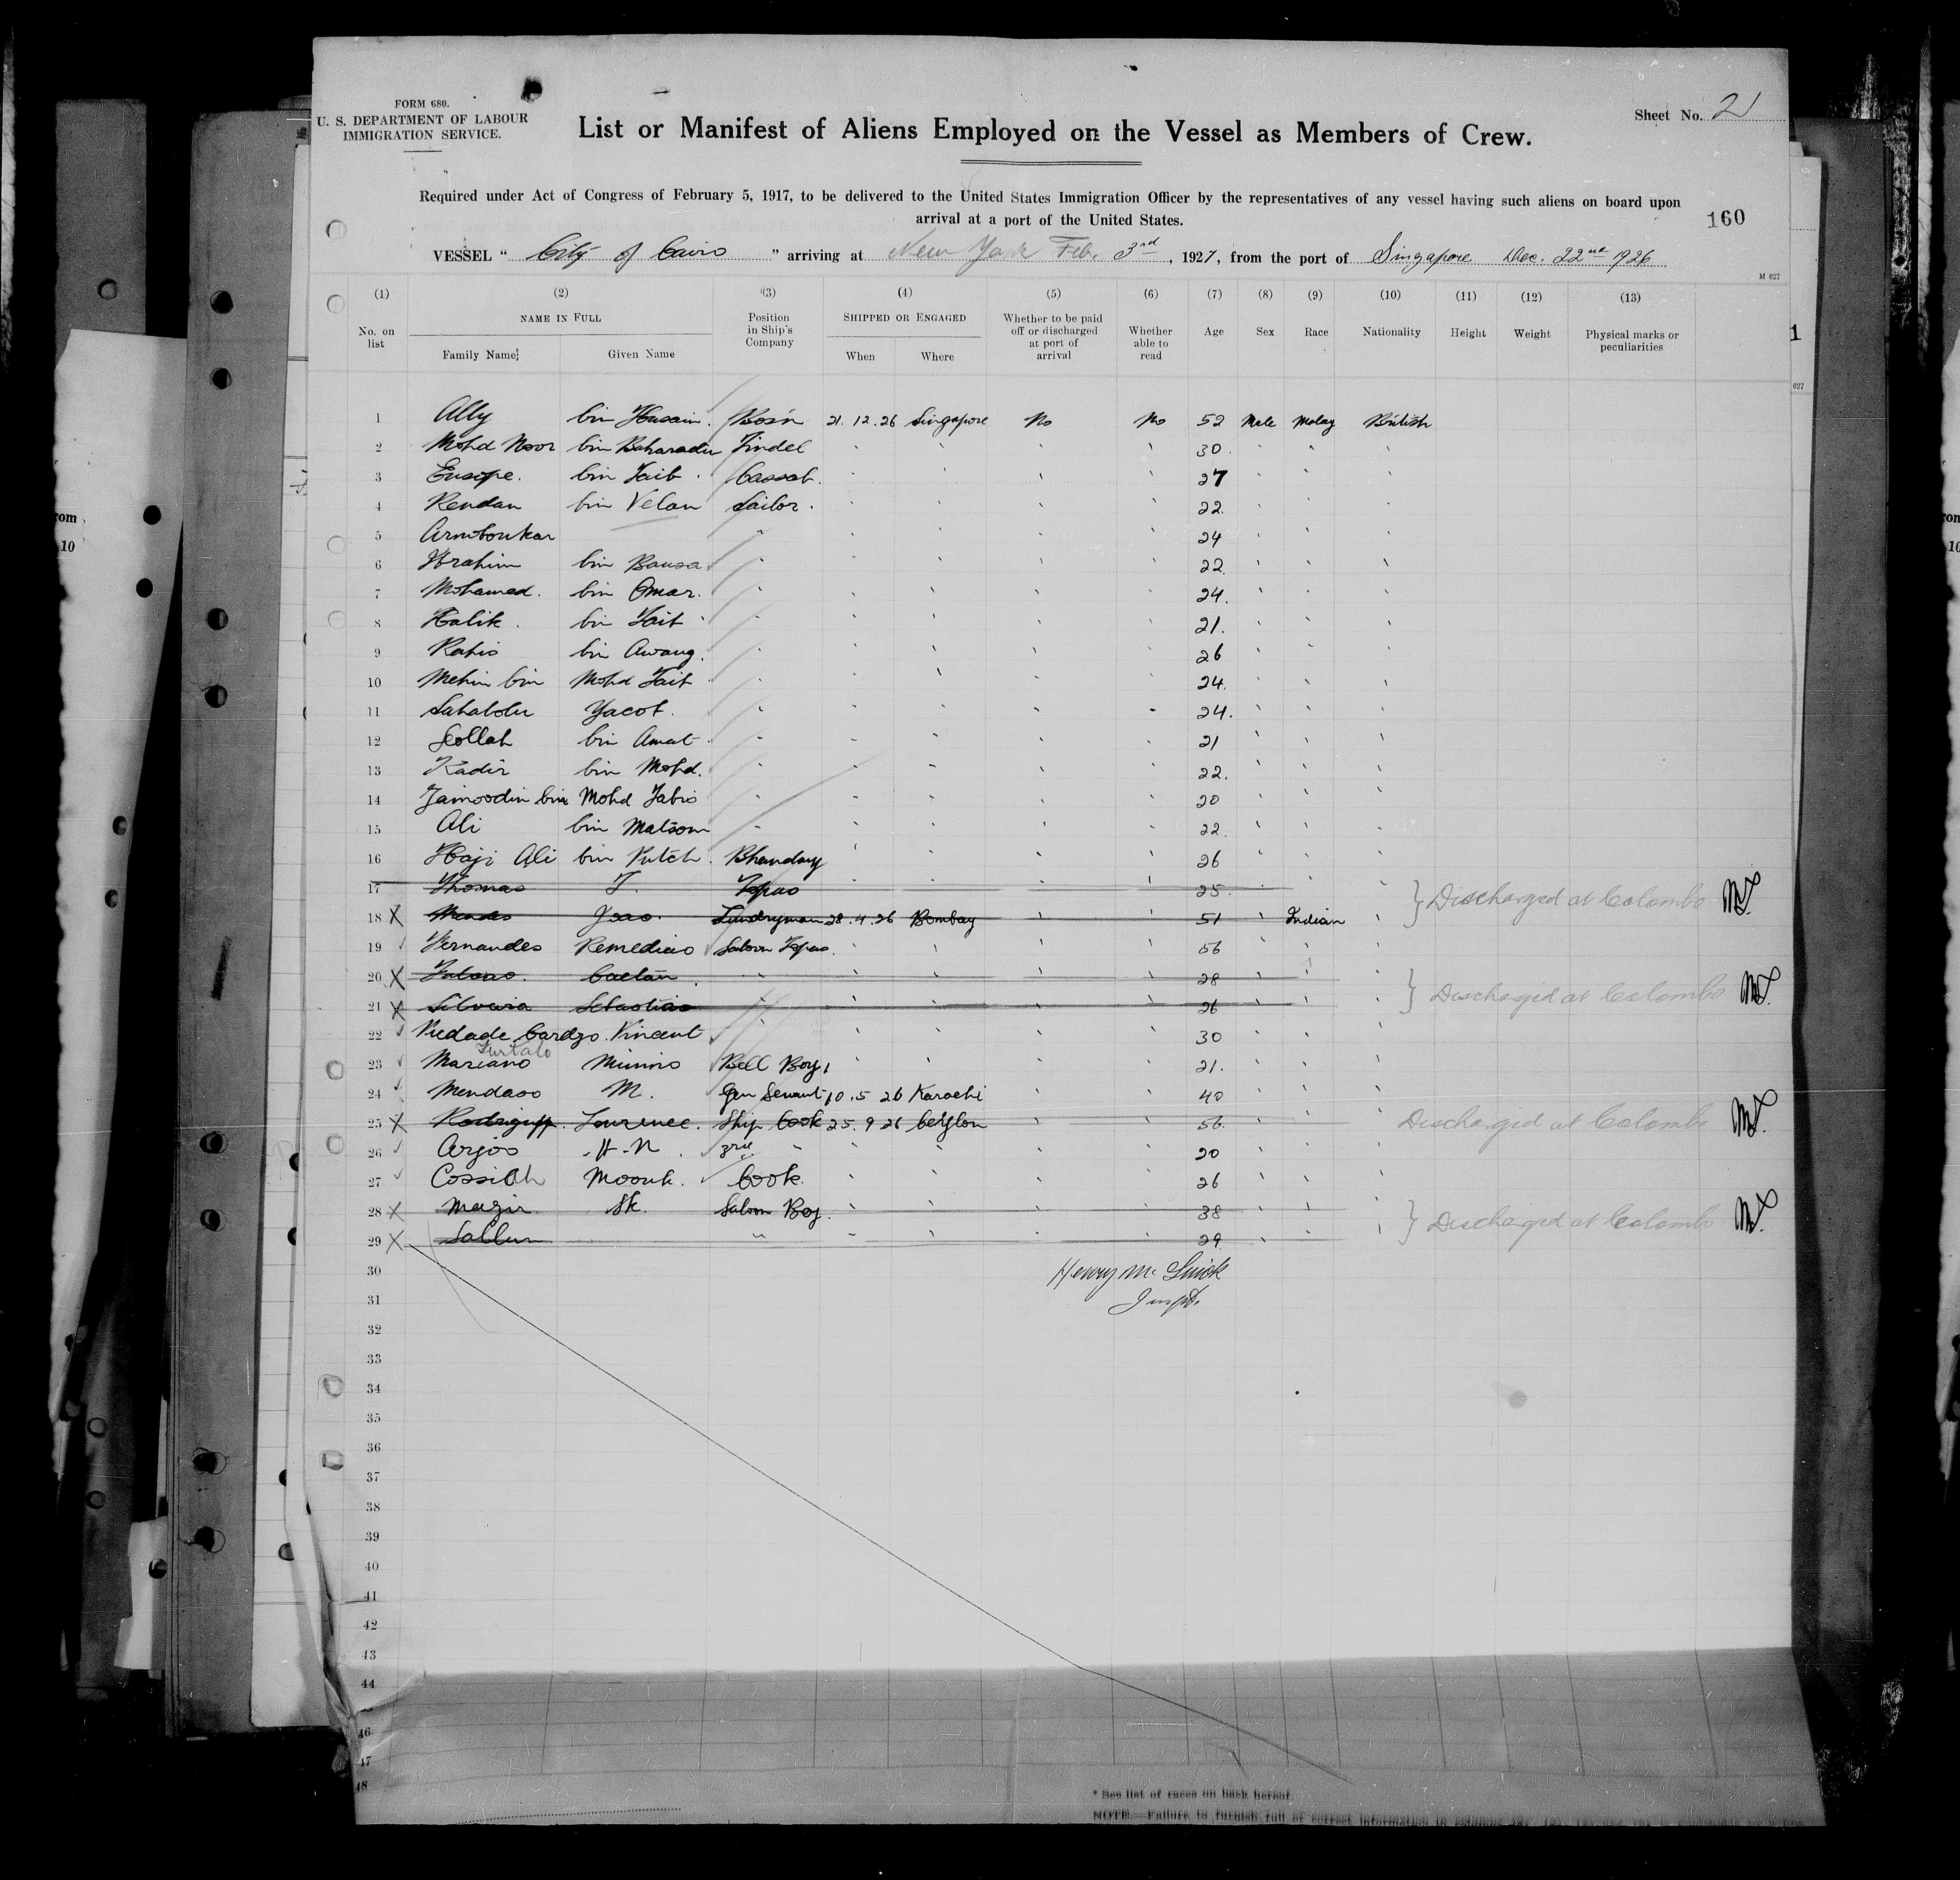 FORM 680.
U. S. DEPARTMENT OF LABOUR
IMMIGRATION SERVICE.
List or Manifest of Aliens Employed on the Vessel as Members of Crew.
Sheet No. 2
Required under Act of Congress of February 5, 1917, to be delivered to the United States Immigration Officer by the representatives of any vessel having such aliens on board upon
arrival at a port of the United States.
160
VESSEL " City of Cairo " arriving at New York Feb. 3rd, 1927, from the port of Singapore Dec. 22nd 1926
M 627
(1) (2) (3) (4) (5) (6) (7) (8) (9) (10) (11) (12) (13)
No. on list NAME IN FULL Family Name Given Name Position in Ship's Company SHIPPED OR ENGAGED When Where Whether to be paid off or discharged at port of arrival Whether able to read Age Sex Race Nationality Height Weight Physical marks or peculiarities
1 Ally bin Husain. Bos'n 21.12.26 Singapore No No 52 Male Malay British
2 Mohd Noor bin Baharadin Tindel 30
3 Eusope. bin Taib Cassab. 27
4 Rendan bin Velan Sailor. 22
5 Armboukar 24
6 Ibrahim bin Bausa 22
7 Mohamed. bin Omar. 24.
8 Halik. bin Tait 21.
9 Rahis bin Awang. 26
10 Mehin bin Mohd Tait 24.
11 Yacob. 24.
12 bin Amat 21
13 Kadir bin Mohd. 22.
14 Jainoodin bin Mohd Tahis 20
15 Ali bin Matsom 22.
16 Haji Ali bin Putch. Bhandary 26
17 Thomas T. Topas 25. Discharged at Colombo
18 X Joao. 28.4.26 Bombay 51 Indian
19 Fernandes Remedios Saloon Topas. 56
20 X Caetan. 28 Discharged at Colombo
21 X Silveira Sebastiao 26
22 Piedade Cardzo. Vincent 30
Furtalo
23 Mariano Bell Boy 21.
24 Mendaso M. Gen Servant 10.5 26 Karachi 40
25 X Laurence. Ship Cook 25.9 26 Ceylon 56. Discharged at Colombo
26 Arjos H.N. 3rd 20
27 Cossiah Moonh. Cook. 26
28 X Sk. Saloon Boy. 38 Discharged at Colombo
29 X Sallun 29
30 Henry
31 Inspt.
32
33
34
35
36
37
38
39
40
41
42
43
44
46
47
48
* See list of races on back hereof.
NOTE.—Failure to furnish full or correct information in columns